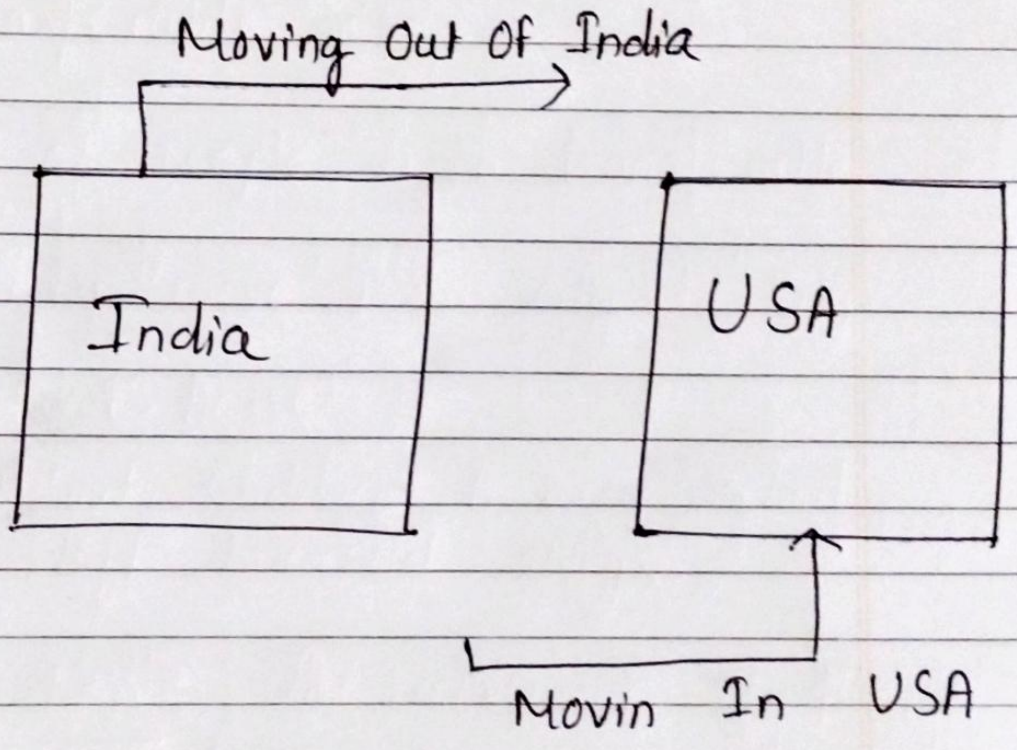 Moving Out Of India
India
USA
Movin In USA